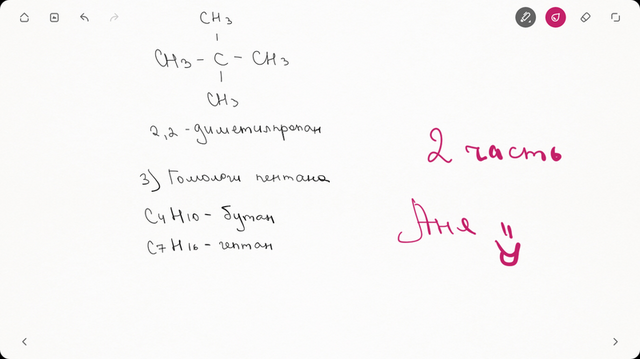 CH3
CH3 - C - CH3
CH3
2,2 - диметилпропан
3) Гомологи пентана
C4H10 - бутан
C7H16 - гептан
2 часть
Аня